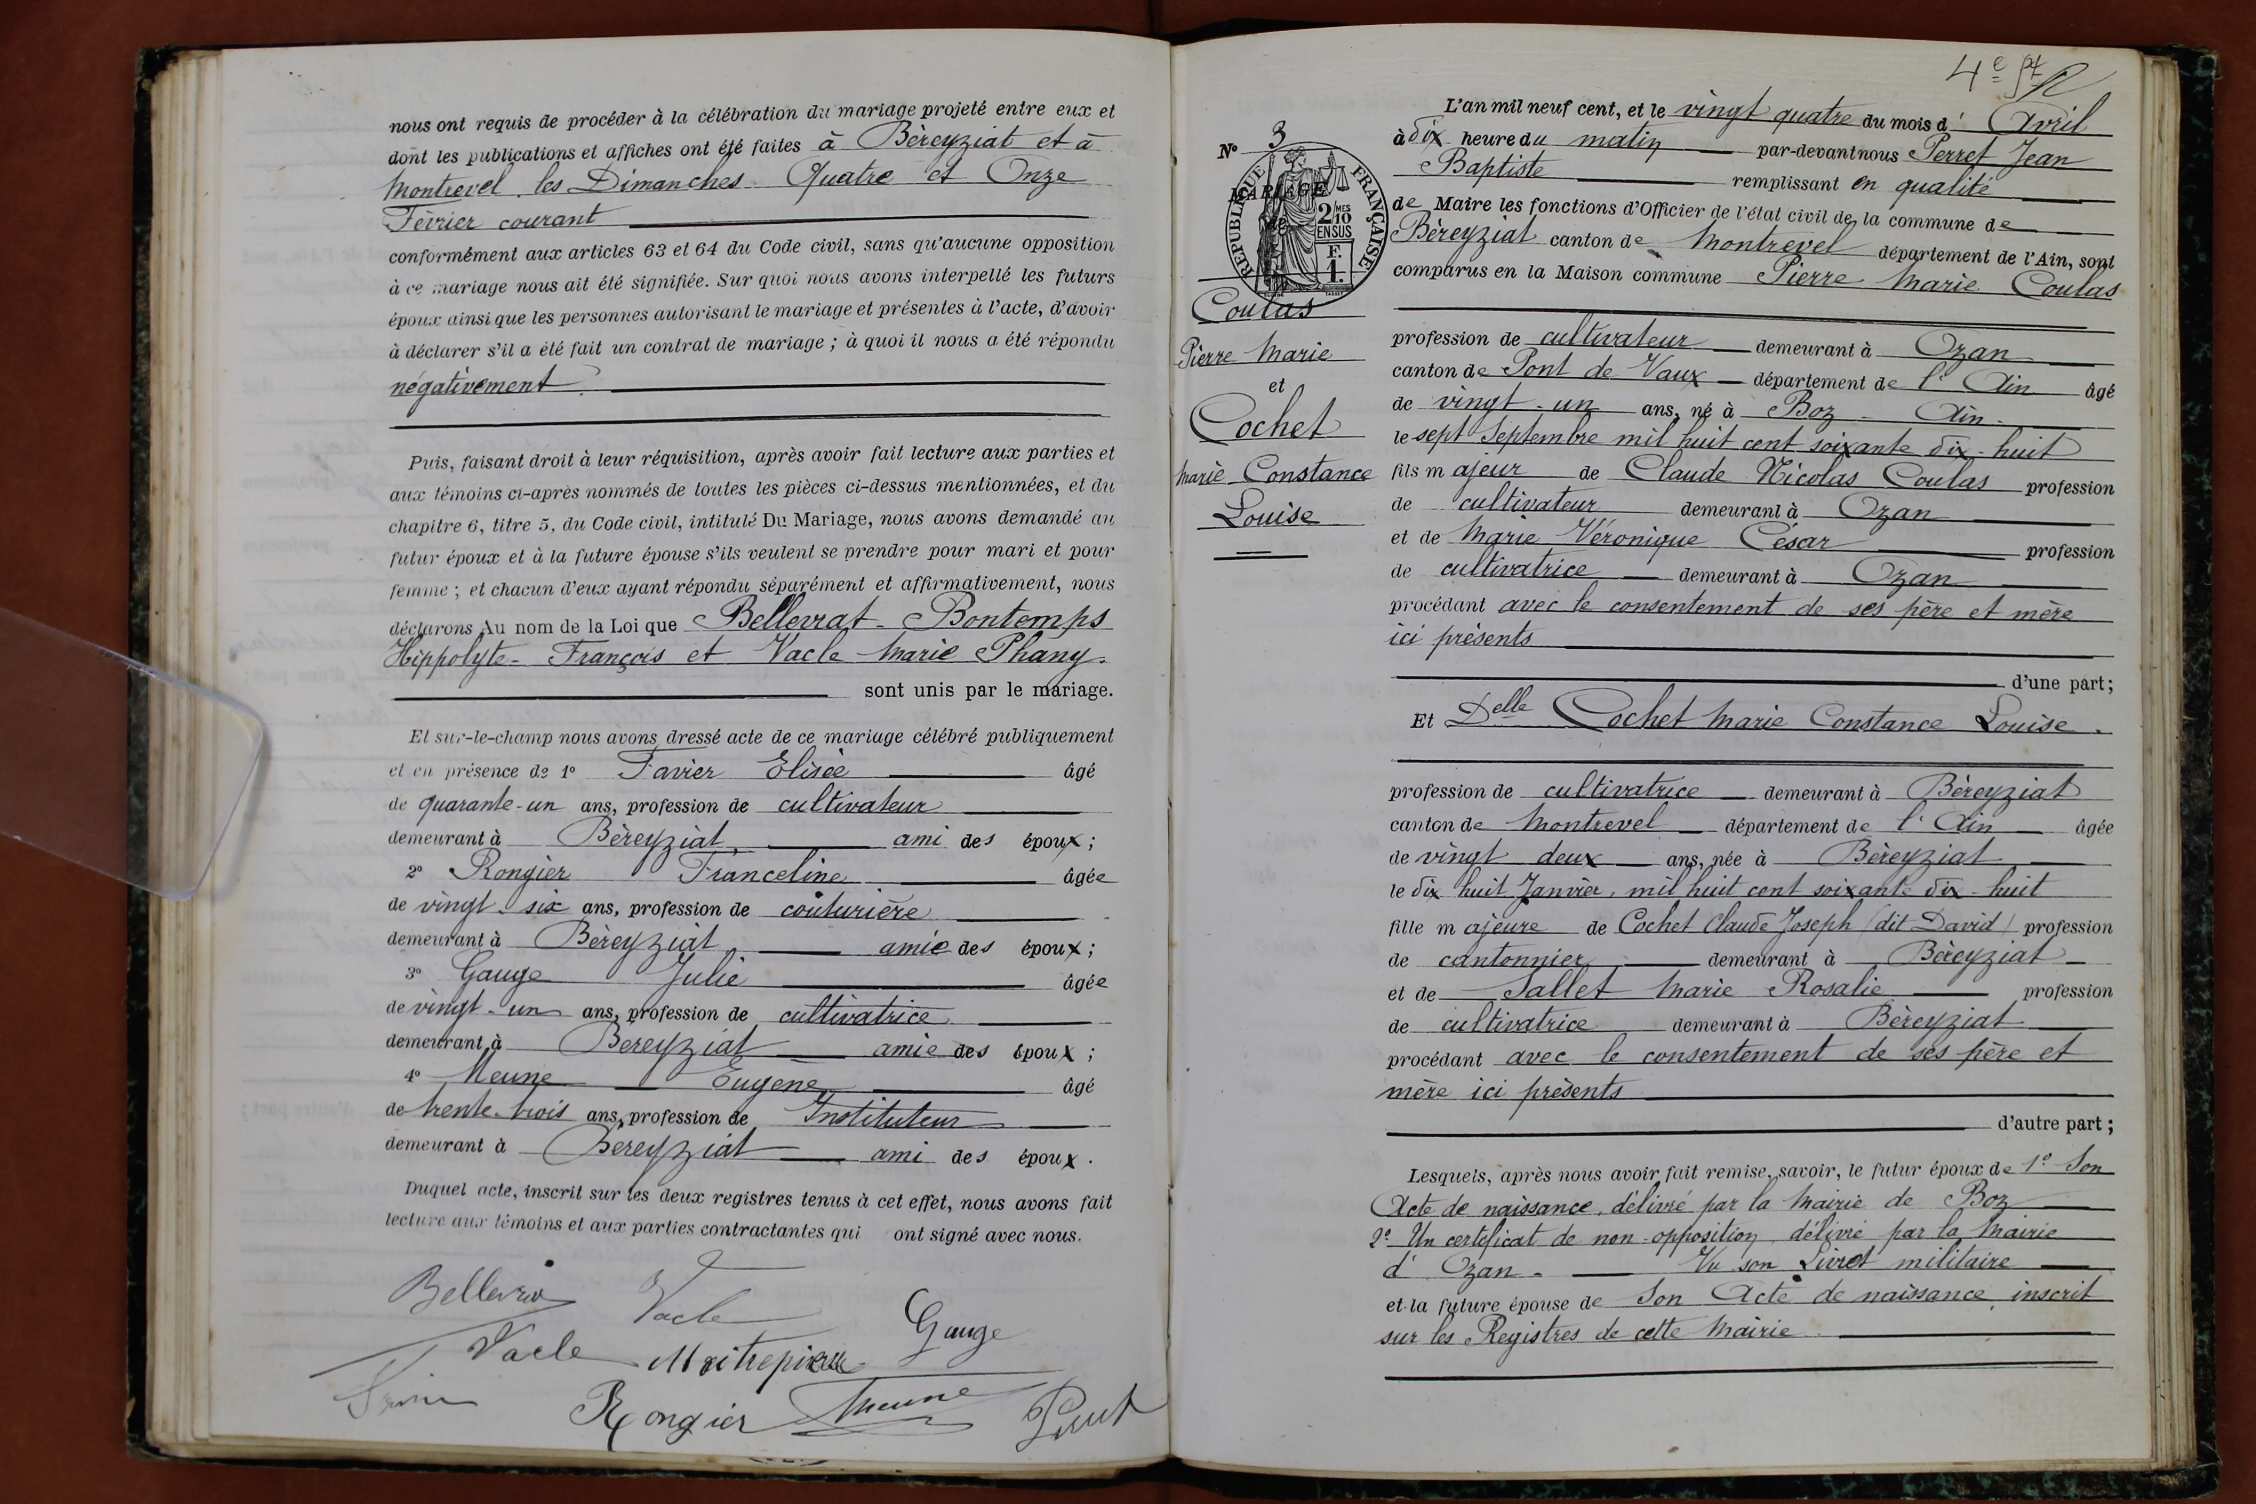 nous ont requis de procéder à la célébration du mariage projeté entre eux et
dont les publications et affiches ont été faites à Béreyziat et à
Montrevel les Dimanches Quatre et Onze
Février courant
conformément aux articles 63 et 64 du Code civil, sans qu'aucune opposition
à ce mariage nous ait été signifiée. Sur quoi nous avons interpellé les futurs
époux ainsi que les personnes autorisant le mariage et présentes à l'acte, d'avoir
à déclarer s'il a été fait un contrat de mariage ; à quoi il nous a été répondu
négativement.
Puis, faisant droit à leur réquisition, après avoir fait lecture aux parties et
aux témoins ci-après nommés de toutes les pièces ci-dessus mentionnées, et du
chapitre 6, titre 5, du Code civil, intitulé Du Mariage, nous avons demandé au
futur époux et à la future épouse s'ils veulent se prendre pour mari et pour
femme ; et chacun d'eux ayant répondu séparément et affirmativement, nous
déclarons Au nom de la Loi que Bellevrat - Bontemps
Hippolyte - François et Vacle Marie Phany.
sont unis par le mariage.
Et sur-le-champ nous avons dressé acte de ce mariage célébré publiquement
et en présence de 1° Favier Elisée âgé
de quarante-un ans, profession de cultivateur
demeurant à Béreyziat ami des époux ;
2° Rongier Franceline âgée
de vingt-six ans, profession de couturière
demeurant à Béreyziat amie des époux ;
3° Gauge Julie âgée
de vingt-un ans, profession de cultivatrice
demeurant à Béreyziat amie des époux ;
4° Meune Eugène âgé
de trente-trois ans, profession de Instituteur
demeurant à Béreyziat ami des époux.
Duquel acte, inscrit sur les deux registres tenus à cet effet, nous avons fait
lecture aux témoins et aux parties contractantes qui ont signé avec nous.
Vacle
Gauge
Vacle
Rongier Meune Perret
4e
N° 3
MARIAGE
de
REPUBLIQUE FRANÇAISE
2/10 MES
EN SUS
F.
1.
Coulas
Pierre Marie
et
Cochet
Marie Constance
Louise
L'an mil neuf cent, et le vingt quatre du mois d' Avril
à dix heure du matin par-devant nous Perret Jean
Baptiste remplissant en qualité
de Maire les fonctions d'Officier de l'état civil de la commune de
Béreyziat canton de Montrevel département de l'Ain, sont
comparus en la Maison commune Pierre Marie Coulas
profession de cultivateur demeurant à Ozan
canton de Pont de Vaux département de l'Ain âgé
de vingt-un ans, né à Boz - Ain -
le sept Septembre mil huit cent soixante dix-huit
fils majeur de Claude Nicolas Coulas profession
de cultivateur demeurant à Ozan
et de Marie Véronique César profession
de cultivatrice demeurant à Ozan
procédant avec le consentement de ses père et mère
ici présents
d'une part ;
Et Delle Cochet Marie Constance Louise.
profession de cultivatrice demeurant à Béreyziat
canton de Montrevel département de l'Ain âgée
de vingt deux ans, née à Béreyziat
le dix huit Janvier, mil huit cent soixante dix-huit
fille majeure de Cochet Claude Joseph (dit David) profession
de cantonnier demeurant à Béreyziat
et de Sallet Marie Rosalie profession
de cultivatrice demeurant à Béreyziat
procédant avec le consentement de ses père et
mère ici présents
d'autre part ;
Lesquels, après nous avoir fait remise, savoir, le futur époux de 1° Son
Acte de naissance, délivré par la Mairie de Boz
2° Un certificat de non-opposition, délivré par la Mairie
d'Ozan. Vu son Livret militaire
et la future épouse de Son Acte de naissance, inscrit
sur les Registres de cette Mairie